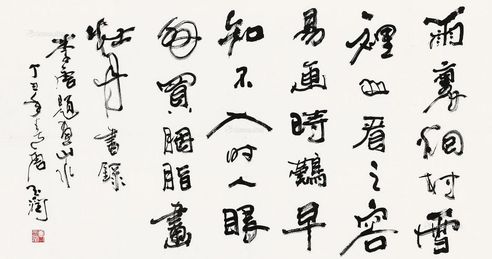 雨裏烟村雪
裡山看之容
易画時難早
知不入时人眼
多買胭脂畫
牡丹 書録
李唐題畫山水
丁丑年